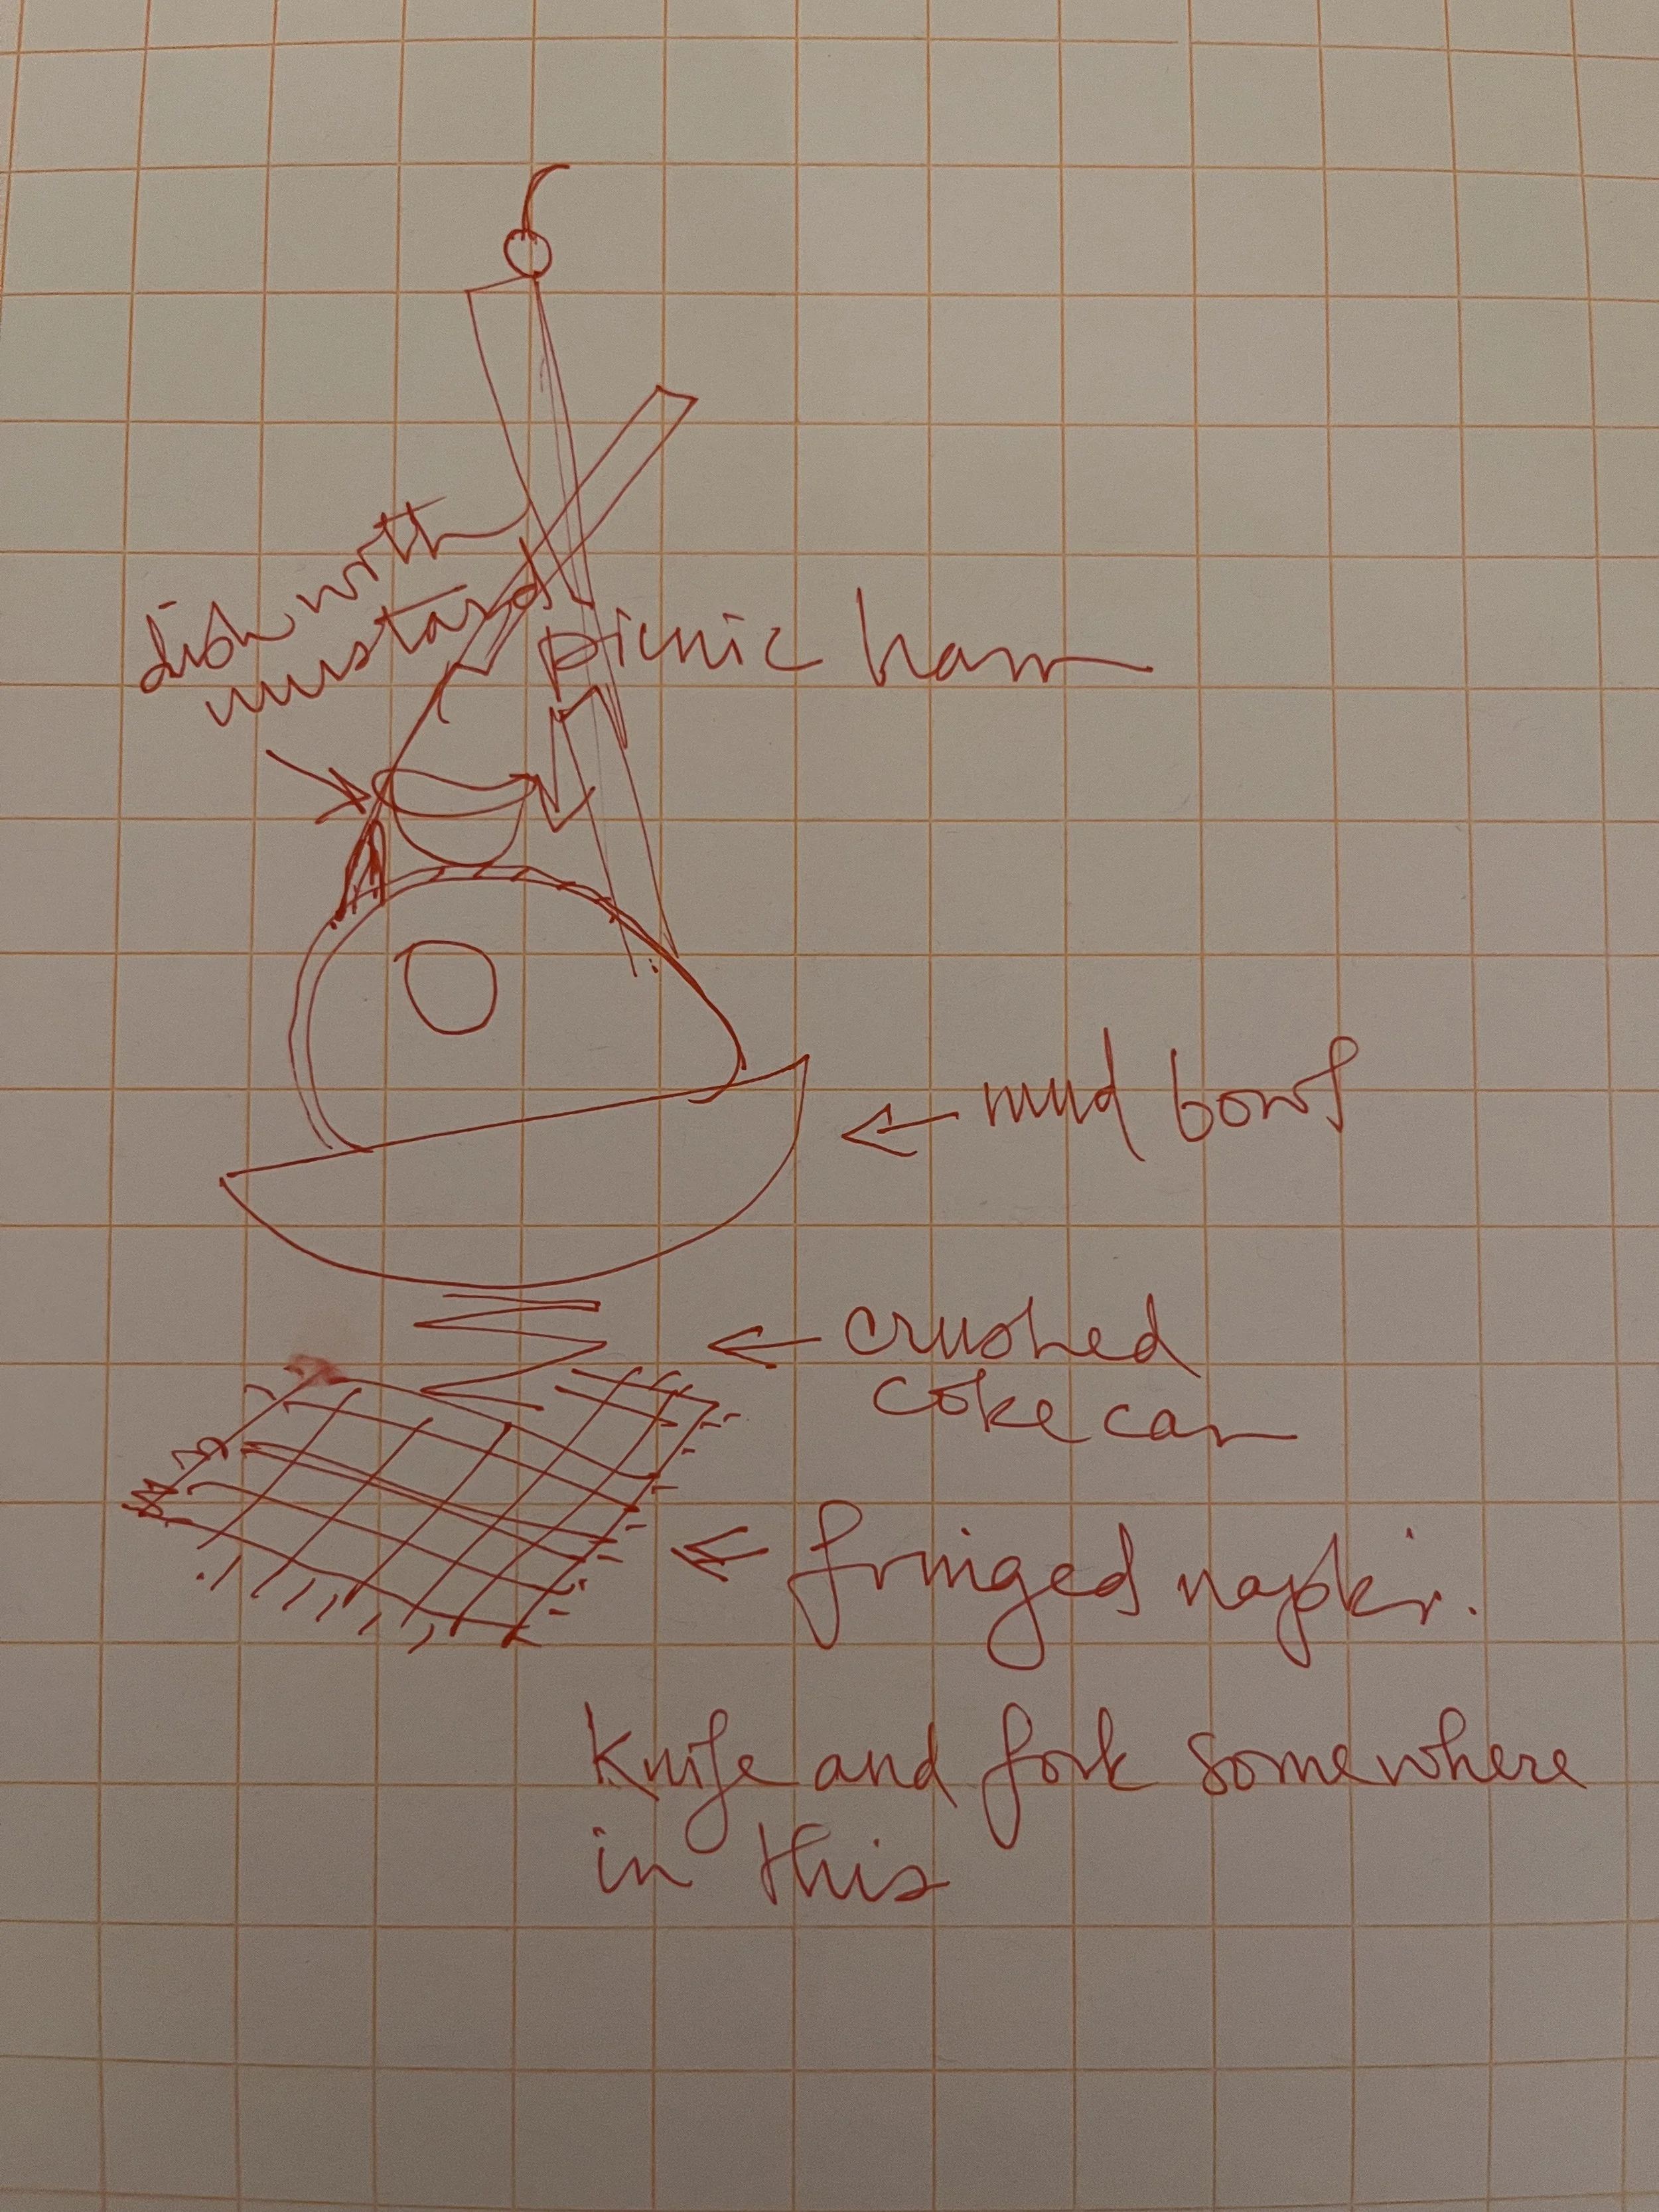 dish with
mustard
picnic ham
mud bowl
crushed
coke can
fringed napkin.
Knife and fork somewhere
in this